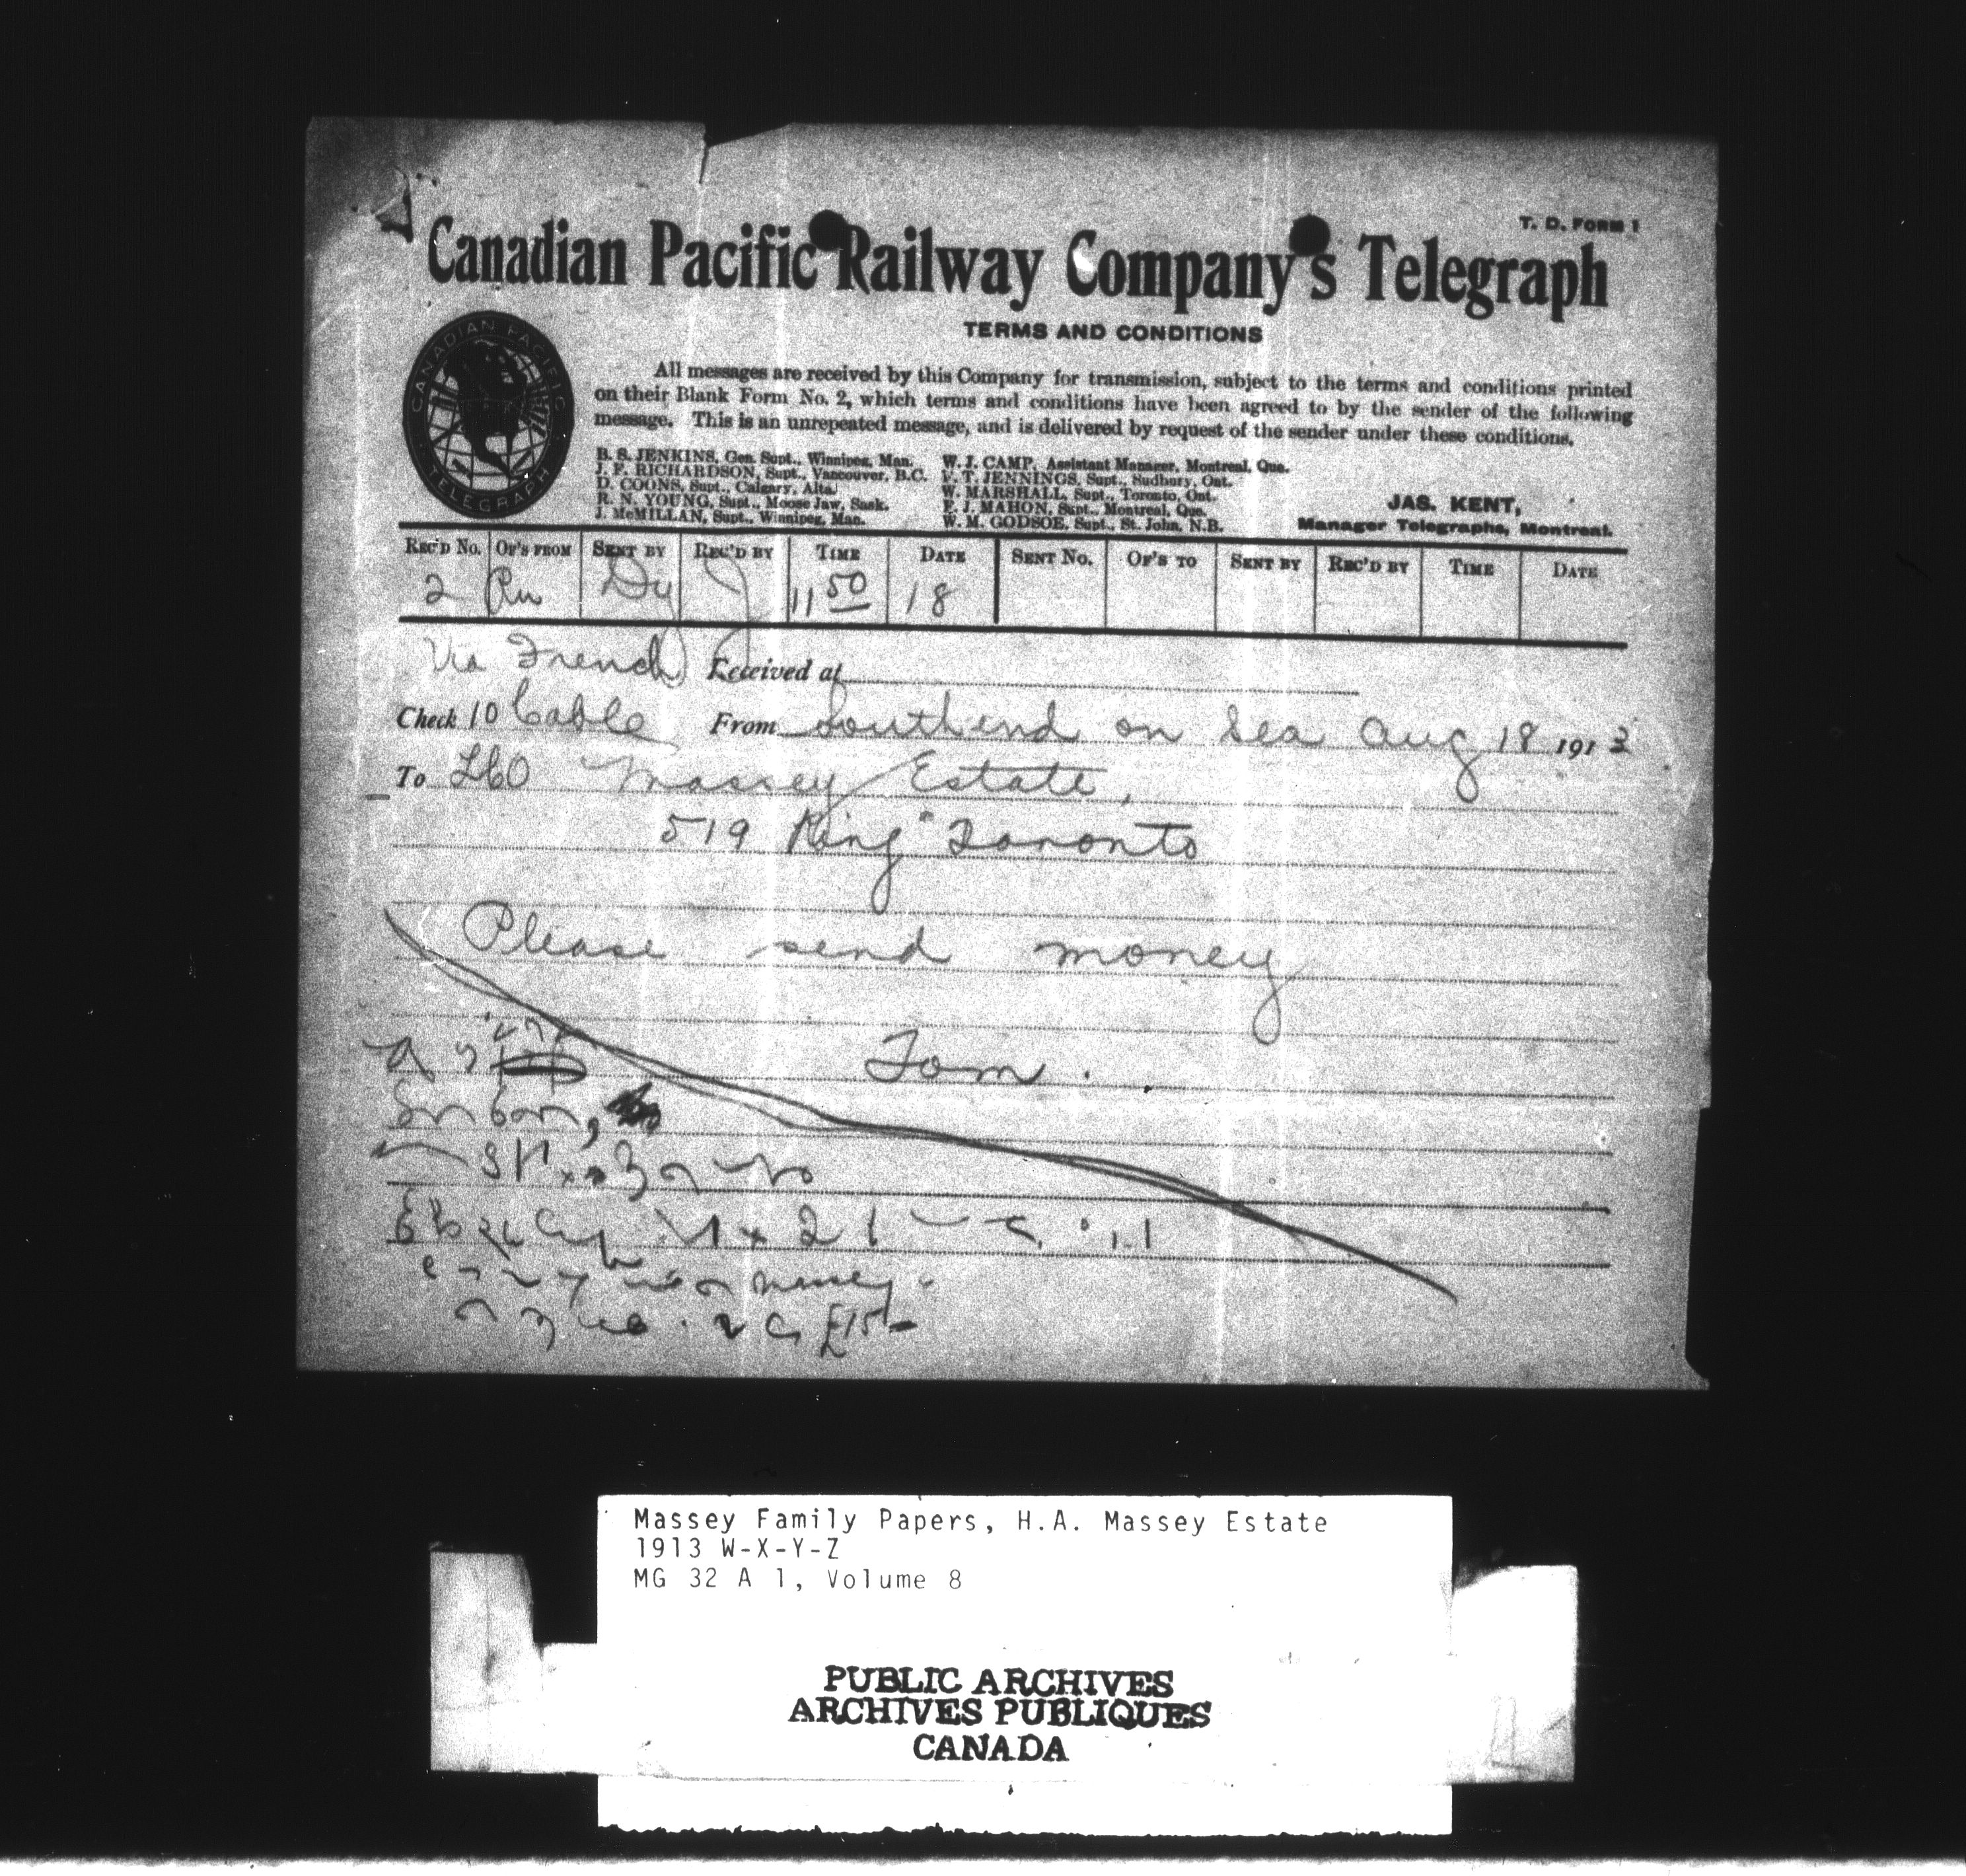 T. D. FORM 1
Canadian Pacific Railway Company's Telegraph
TERMS AND CONDITIONS
CANADIAN PACIFIC
TELEGRAPH
All messages are received by this Company for transmission, subject to the terms and conditions printed
on their Blank Form No. 2, which terms and conditions have been agreed to by the sender of the following
message. This is an unrepeated message, and is delivered by request of the sender under these conditions.
B. S. JENKINS, Gen. Supt., Winnipeg, Man. W. J. CAMP, Assistant Manager, Montreal, Que.
J. F. RICHARDSON, Supt., Vancouver, B.C. F. T. JENNINGS, Supt., Sudbury, Ont.
D. COONS, Supt., Calgary, Alta. W. MARSHALL, Supt., Toronto, Ont.
R. N. YOUNG, Supt., Moose Jaw, Sask. E. J. MAHON, Supt., Montreal, Que.
J. McMILLAN, Supt., Winnipeg, Man. W. M. GODSOE, Supt., St. John, N.B.
JAS. KENT,
Manager Telegraphs, Montreal.
REC'D NO. OF'S FROM SENT BY REC'D BY TIME DATE SENT NO. OF'S TO SENT BY REC'D BY TIME DATE
2 Dy 11 50 18
Via French Received at
Check 10 Cable From Southend on Sea Aug 18 1913
To Massey Estate,
519 King Toronto
Please send money
Tom.
Massey
£15
Massey Family Papers, H.A. Massey Estate
1913 W-X-Y-Z
MG 32 A 1, Volume 8
PUBLIC ARCHIVES
ARCHIVES PUBLIQUES
CANADA